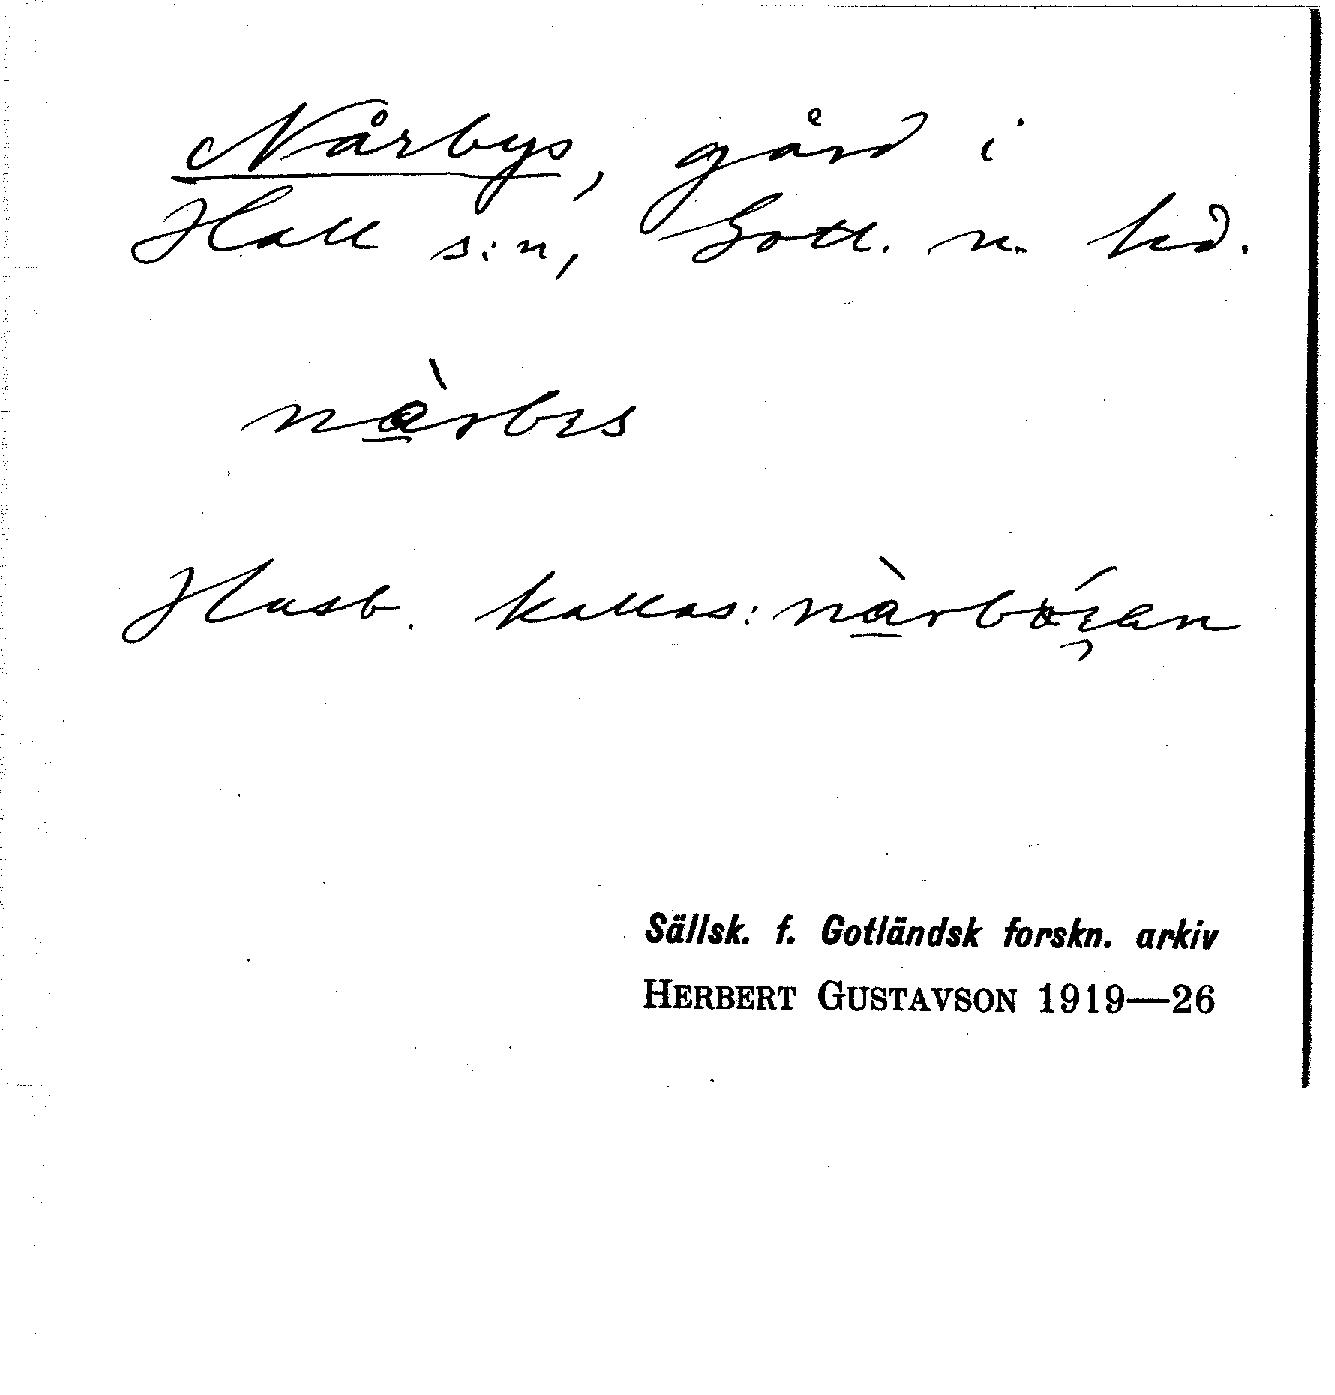 Nårbys, gård i
Hall s:n, Gotl. n. hd.
nàrbɪs
Husb. kallas:
Sällsk. f. Gotländsk forskn. arkiv
HERBERT GUSTAVSON 1919—26